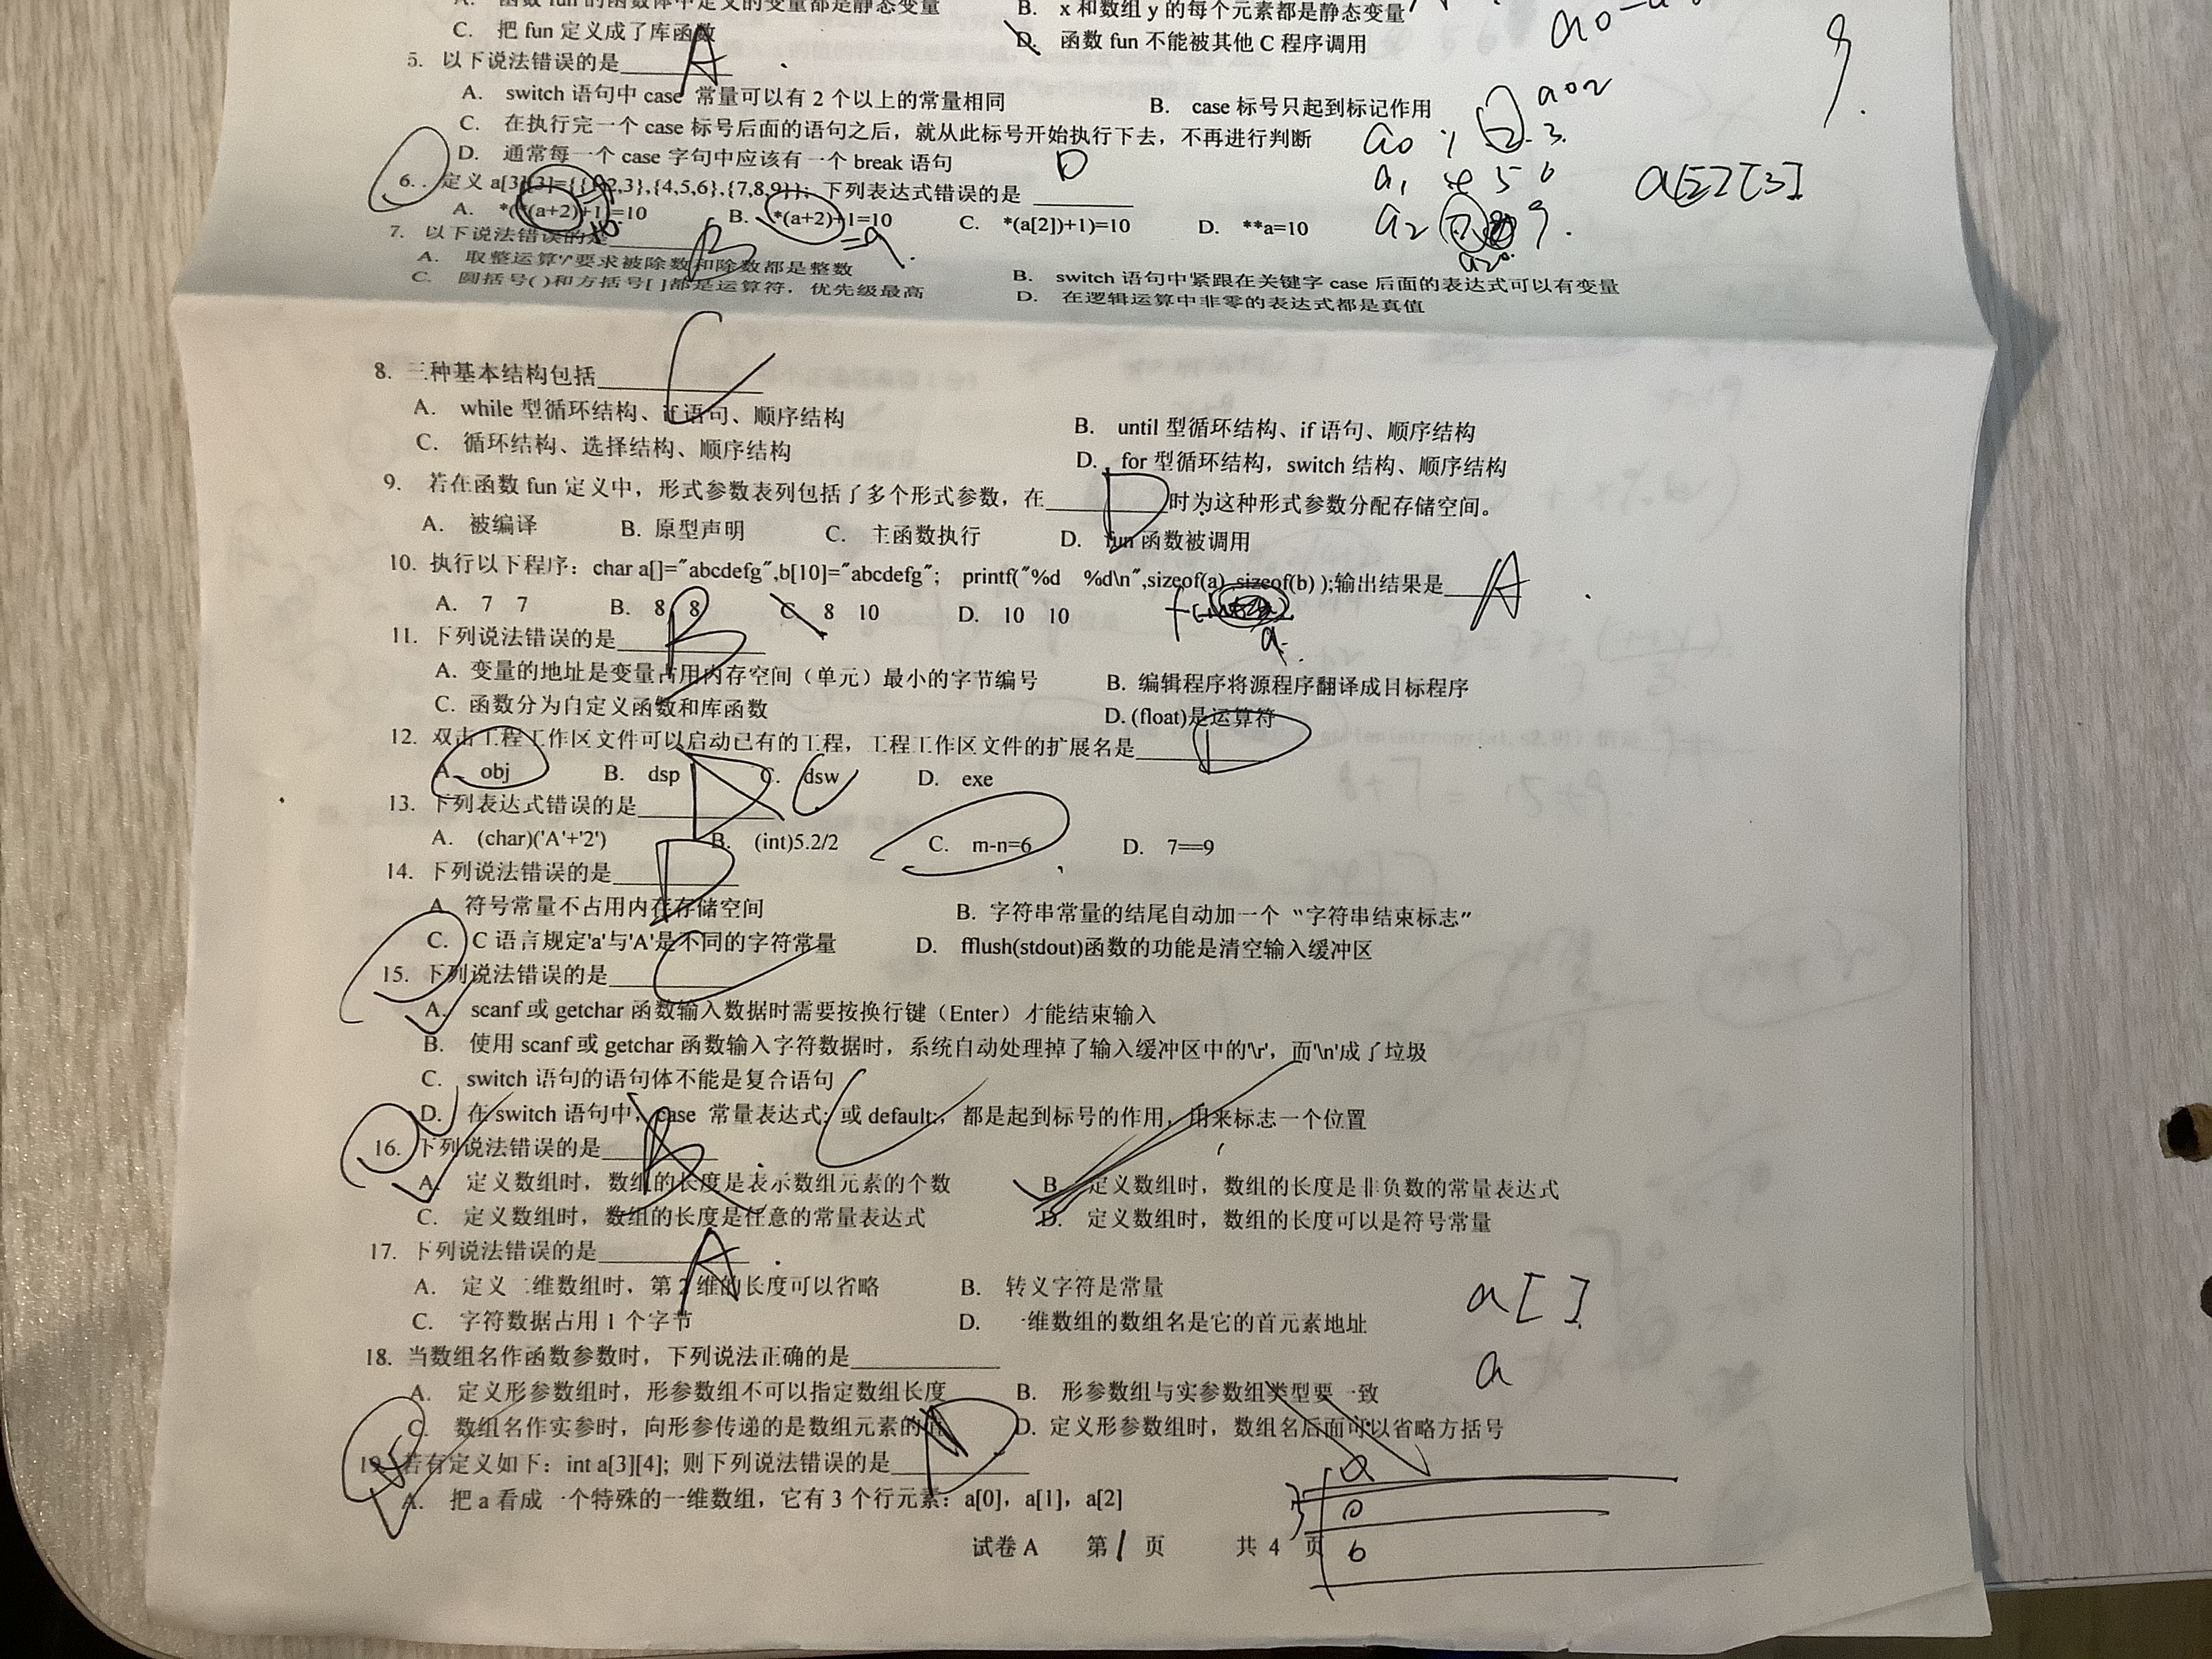 A. 函数 fun 的函数体中定义的变量都是静态变量 B. x 和数组 y 的每个元素都是静态变量
C. 把 fun 定义成了库函数 D. 函数 fun 不能被其他 C 程序调用
5. 以下说法错误的是 A
A. switch 语句中 case 常量可以有 2 个以上的常量相同 B. case 标号只起到标记作用
C. 在执行完一个 case 标号后面的语句之后，就从此标号开始执行下去，不再进行判断
D. 通常每一个 case 字句中应该有一个 break 语句
6. 定义 a[3][3]={{1,2,3},{4,5,6},{7,8,9}}; 下列表达式错误的是 D
a[2][3]
A. *(*(a+2)+1)=10 B. *(a+2)+1=10 C. *(a[2])+1)=10 D. **a=10
7. 以下说法错误的是 B
A. 取整运算'/'要求被除数和除数都是整数 B. switch 语句中紧跟在关键字 case 后面的表达式可以有变量
C. 圆括号( )和方括号[ ]都是运算符，优先级最高 D. 在逻辑运算中非零的表达式都是真值
8. 三种基本结构包括 C
A. while 型循环结构、if 语句、顺序结构 B. until 型循环结构、if 语句、顺序结构
C. 循环结构、选择结构、顺序结构 D. for 型循环结构，switch 结构、顺序结构
9. 若在函数 fun 定义中，形式参数表列包括了多个形式参数，在 D 时为这种形式参数分配存储空间。
A. 被编译 B. 原型声明 C. 主函数执行 D. fun 函数被调用
10. 执行以下程序：char a[]="abcdefg",b[10]="abcdefg"; printf("%d %d\n",sizeof(a),sizeof(b) );输出结果是 A
A. 7 7 B. 8 8 C. 8 10 D. 10 10
11. 下列说法错误的是 B
A. 变量的地址是变量占用内存空间（单元）最小的字节编号 B. 编辑程序将源程序翻译成目标程序
C. 函数分为自定义函数和库函数 D. (float)是运算符
12. 双击工程工作区文件可以启动已有的工程，工程工作区文件的扩展名是 D
A. obj B. dsp C. dsw D. exe
13. 下列表达式错误的是 D
A. (char)('A'+'2') B. (int)5.2/2 C. m-n=6 D. 7==9
14. 下列说法错误的是 D
A. 符号常量不占用内在存储空间 B. 字符串常量的结尾自动加一个 “字符串结束标志”
C. C 语言规定'a'与'A'是不同的字符常量 D. fflush(stdout)函数的功能是清空输入缓冲区
15. 下列说法错误的是 C
A. scanf 或 getchar 函数输入数据时需要按换行键（Enter）才能结束输入
B. 使用 scanf 或 getchar 函数输入字符数据时，系统自动处理掉了输入缓冲区中的'\r'，而'\n'成了垃圾
C. switch 语句的语句体不能是复合语句
D. 在 switch 语句中，case 常量表达式: 或 default:，都是起到标号的作用，用来标志一个位置
16. 下列说法错误的是 C
A. 定义数组时，数组的长度是表示数组元素的个数 B. 定义数组时，数组的长度是非负数的常量表达式
C. 定义数组时，数组的长度是任意的常量表达式 D. 定义数组时，数组的长度可以是符号常量
17. 下列说法错误的是 A
A. 定义二维数组时，第 2 维的长度可以省略 B. 转义字符是常量
a[ ]
C. 字符数据占用 1 个字节 D. 一维数组的数组名是它的首元素地址
18. 当数组名作函数参数时，下列说法正确的是
a
A. 定义形参数组时，形参数组不可以指定数组长度 B. 形参数组与实参数组类型要一致
C. 数组名作实参时，向形参传递的是数组元素的 D. 定义形参数组时，数组名后面可以省略方括号
19. 若有定义如下：int a[3][4]; 则下列说法错误的是 D
A. 把 a 看成一个特殊的一维数组，它有 3 个行元素：a[0]，a[1]，a[2]
试卷 A 第 1 页 共 4 页